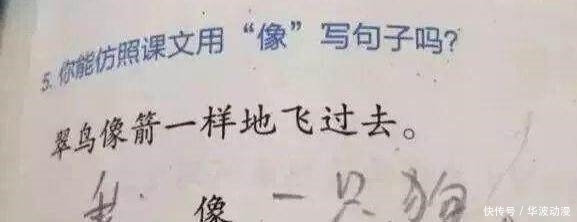 5. 你能仿照课文用“像”写句子吗?
翠鸟像箭一样地飞过去。
像一只狗
快传号 / 华波动漫